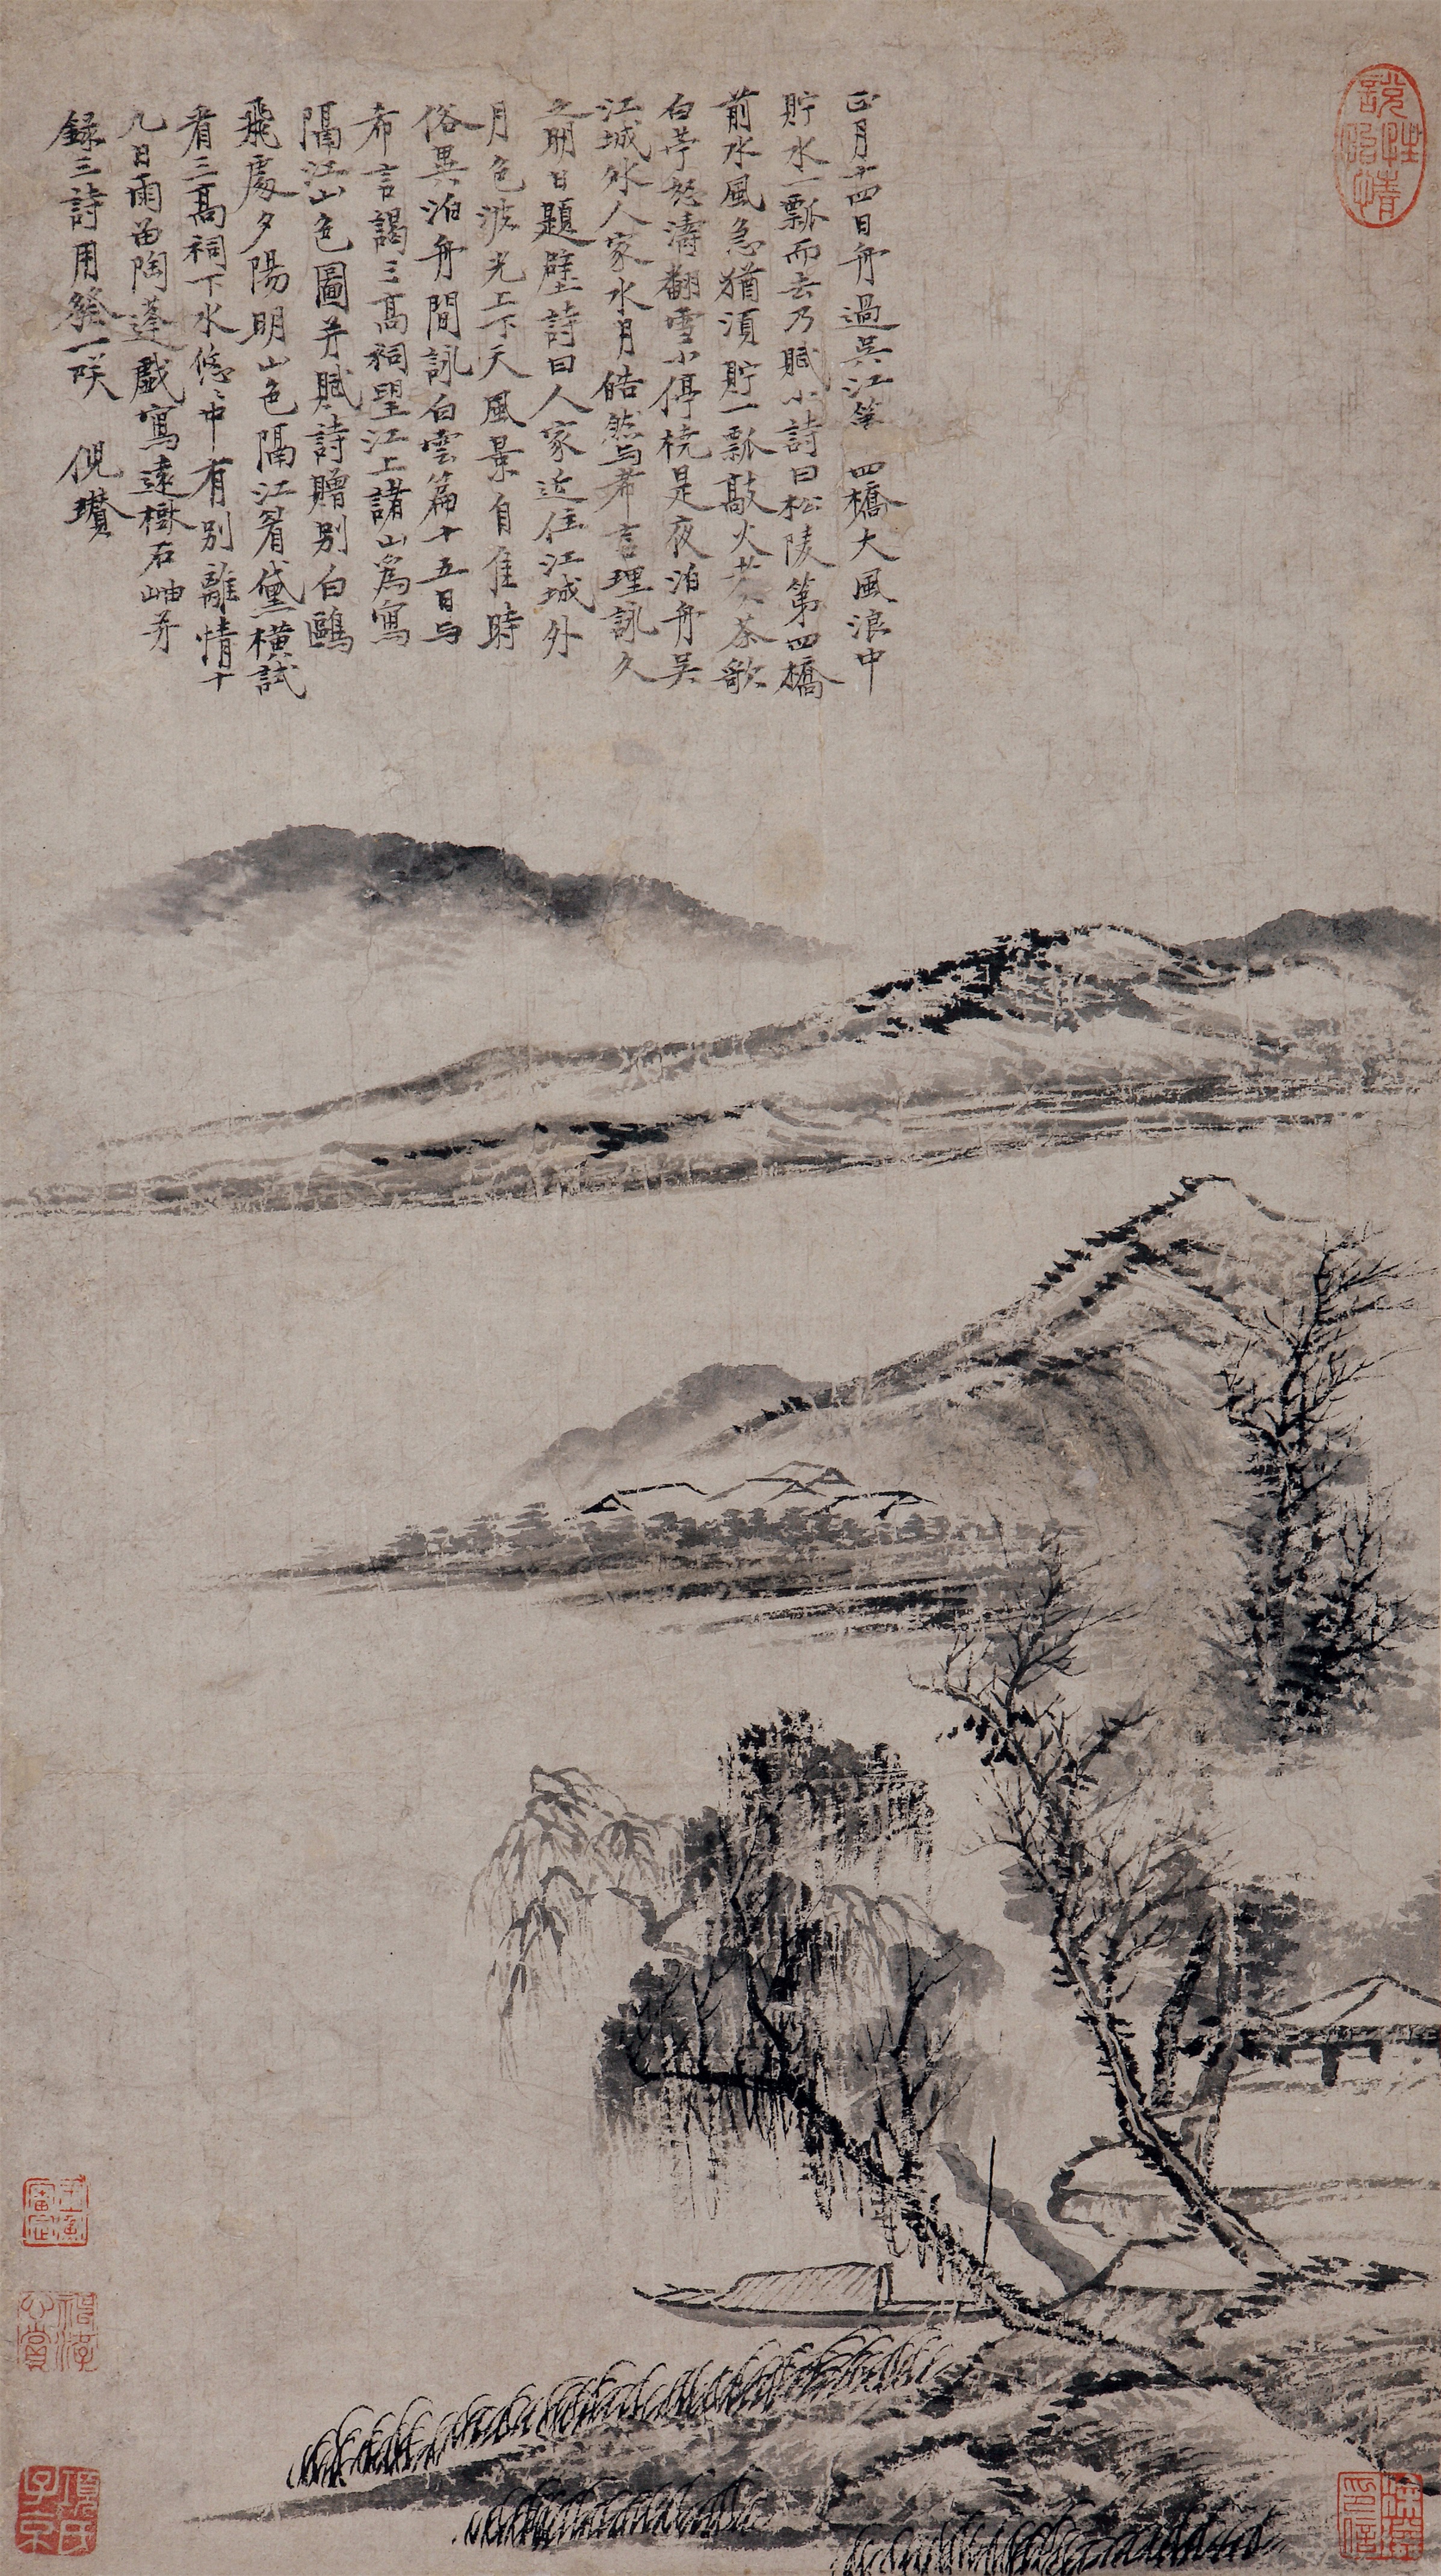 正月十四日舟過吳江第四橋大風浪中
貯水一瓢而去乃賦小詩曰松陵第四橋
前水風急猶須貯一瓢敲火煑茶歌
白苧怒濤翻雪小停橈是夜泊舟吳
江城外人家水月皓然与希言理詠久
之明日題壁詩曰人家近住江城外
月色波光上下天風景自佳時
俗異泊舟間詠白雲篇十五日与
希言謁三高祠望江上諸山為寫
隔江山色圖并賦詩贈别白鷗
飛處夕陽明山色隔江眉黛横試
看三高祠下水悠〻中有别離情十
九日雨留陶蓬戯寫遠樹石岫并
録三詩用發一咲 倪瓚
說性
情
項氏
子京